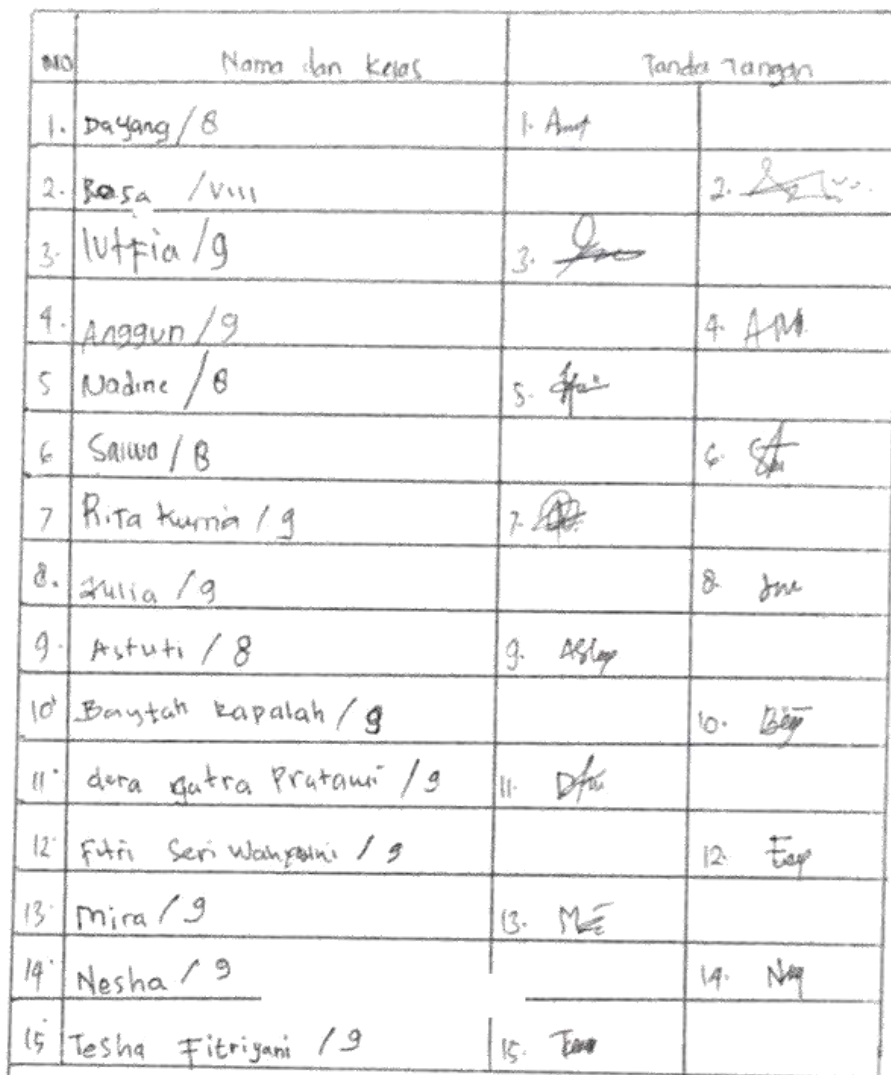 NO Nama dan Kelas Tanda Tangan
1. Dayang / 8 1.
2. Rosa / VIII 2.
3. lutfia / 9 3.
4. Anggun / 9 4. AM
5 Nadine / 8 5.
6 Salwa / 8 6.
7 Rita Kurnia / 9 7.
8. Julia / 9 8.
9. Astuti / 8 9.
10 Baytah Kapalah / 9 10.
11 dara gatra Pratawi / 9 11.
12 Fitri Seri / 9 12.
13 Mira / 9 13.
14 Nesha / 9 14.
15 Tesha Fitriyani / 9 15.